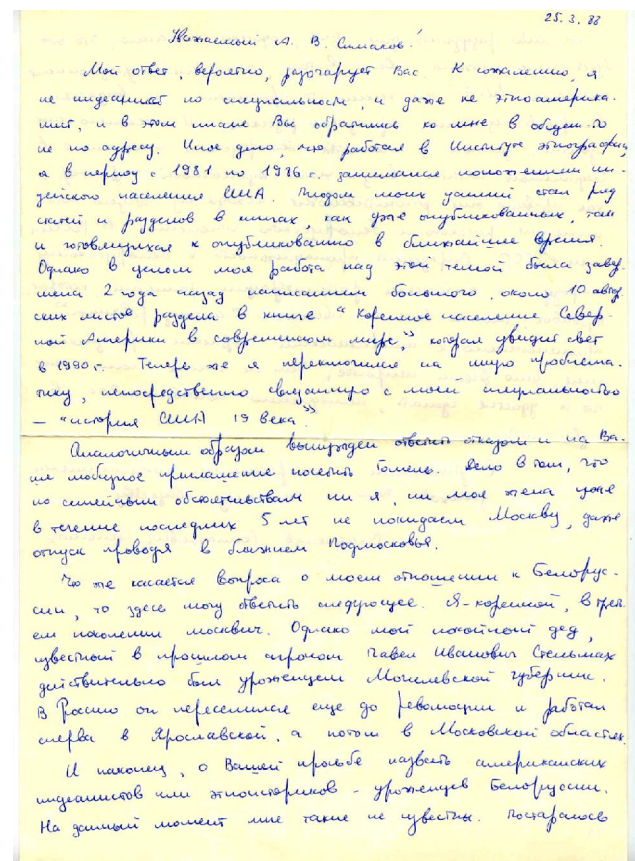 25.3.88
Уважаемый А. В. Симаков!
Мой ответ, вероятно, разочарует Вас. К сожалению, я
не индеанист по специальности, и даже не этноамерика-
нист, и в этом плане Вы обратились ко мне в общем-то
не по адресу. Иное дело, что работая в Институте этнографии,
я в период с 1981 по 1986 г. занимался положением ин-
дейского населения США. Плодом моих усилий стал ряд
статей и разделов в книгах, как уже опубликованных, так
и готовящихся к опубликованию в ближайшее время.
Однако в целом моя работа над этой темой была завер-
шена 2 года назад написанием большого, около 10 автор-
ских листов раздела в книге "Коренное население Север-
ной Америки в современном мире", которая увидит свет
в 1990 г. Теперь же я переключился на иную проблема-
тику, непосредственно связанную с моей специальностью
– "история США 19 века".
Аналогичным образом вынужден ответить отказом и на Ва-
ше любезное приглашение посетить Гомель. Дело в том, что
по семейным обстоятельствам ни я, ни моя жена уже
в течение последних 5 лет не покидаем Москву, даже
отпуск проводя в ближнем Подмосковье.
Что же касается вопроса о моем отношении к Белорус-
сии, то здесь могу ответить следующее. Я – коренной, в треть-
ем поколении москвич. Однако мой покойный дед,
известный в прошлом агроном Павел Иванович Стельмах
действительно был уроженцем Могилевской губернии.
В Россию он переселился еще до революции и работал
сперва в Ярославской, а потом в Московской областях.
И наконец, о Вашей просьбе назвать американских
индеанистов или этноисториков – уроженцев Белоруссии.
На данный момент мне такие не известны. Постараюсь